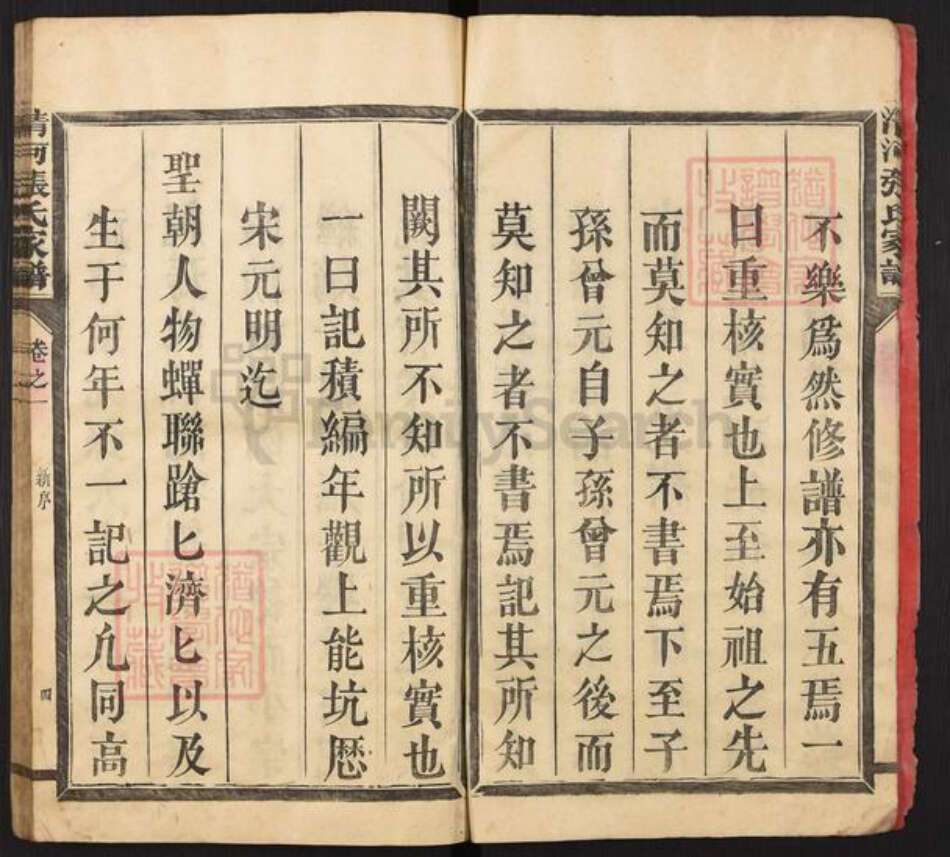 不樂爲然修譜亦有五焉一
曰重核實也上至始祖之先
而莫知之者不書焉下至子
孫曾元自子孫曾元之後而
莫知之者不書焉記其所知
闕其所不知所以重核實也
一曰記積編年觀上能坑歷
宋元明迄
聖朝人物蟬聯蹌匕濟匕以及
生于何年不一記之凣同高
清河張氏家譜
卷之一
新序
四
清河張氏家譜
FamilySearch